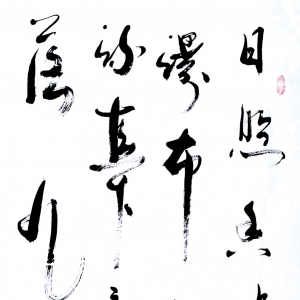 日照香
瀑布
流直下三
落九